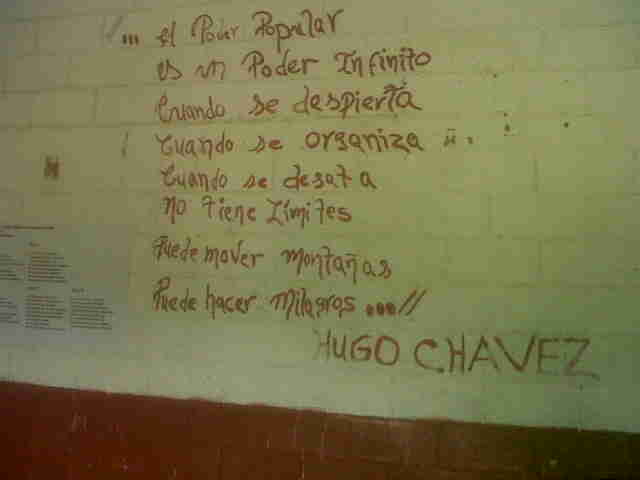 ... el Poder Popular
es un Poder Infinito
Cuando se despierta
Cuando se organiza
Cuando se desata
no tiene Límites
Puede mover montañas
Puede hacer Milagros ...//
HUGO CHAVEZ